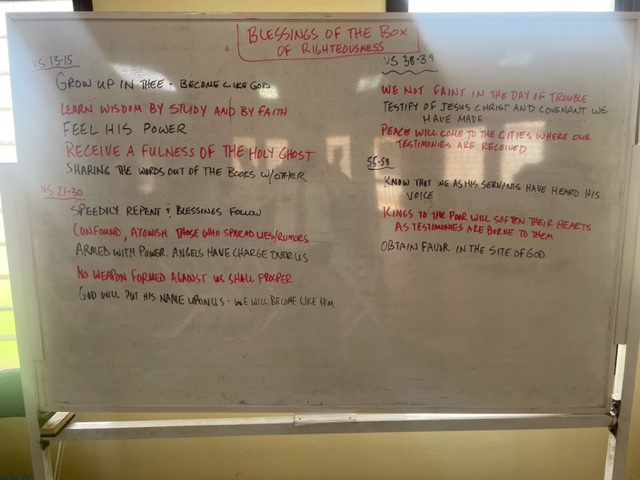 BLESSINGS OF THE BOX
OF RIGHTEOUSNESS
VS 13-15
GROW UP IN THEE - BECOME LIKE GOD
LEARN WISDOM BY STUDY AND BY FAITH
FEEL HIS POWER
RECEIVE A FULNESS OF THE HOLY GHOST
SHARING THE WORDS OUT OF THE BOOKS W/OTHER
VS 21-30
SPEEDILY REPENT & BLESSINGS FOLLOW
CONFOUND, ATONISH THOSE WHO SPREAD LIES/RUMORS
ARMED WITH POWER. ANGELS HAVE CHARGE OVER US
NO WEAPON FORMED AGAINST US SHALL PROSPER
GOD WILL PUT HIS NAME UPON US - WE WILL BECOME LIKE HIM
VS 38-39
WE NOT FAINT IN THE DAY OF TROUBLE
TESTIFY OF JESUS CHRIST AND COVENANT WE
HAVE MADE
PEACE WILL COME TO THE CITIES WHERE OUR
TESTIMONIES ARE RECEIVED
55-58
KNOW THAT WE AS HIS SERVANTS HAVE HEARD HIS
VOICE
KINGS TO THE POOR WILL SOFTEN THEIR HEARTS
AS TESTIMONIES ARE BORNE TO THEM
OBTAIN FAVOR IN THE SITE OF GOD